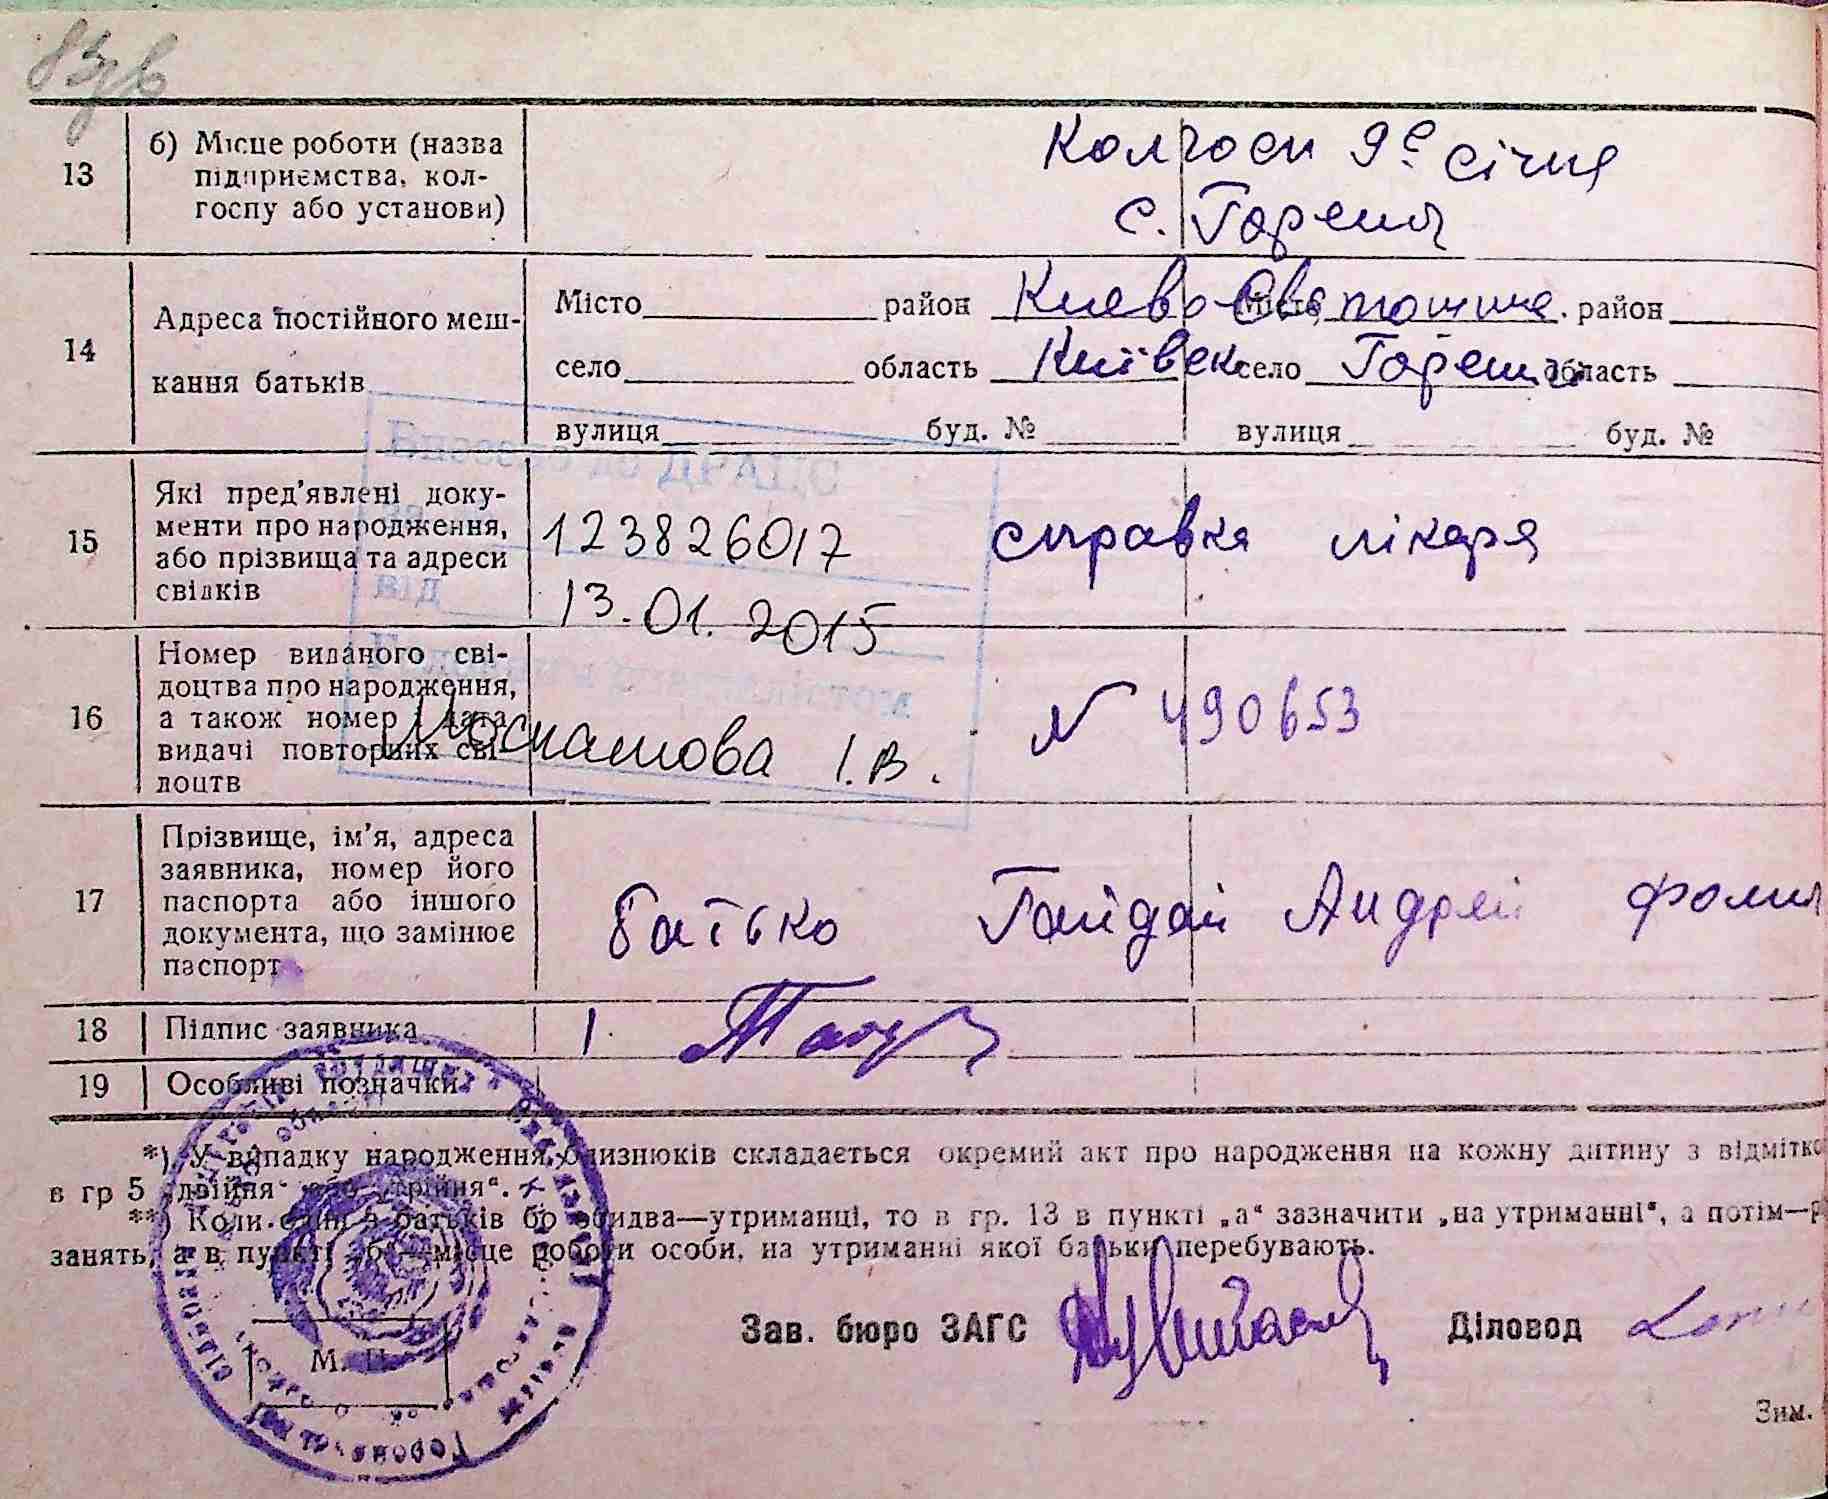 83зв
13 б) Місце роботи (назва підприємства, колгоспу або установи) Колгосп 9е січня
с. Гореничі
14 Адреса постійного мешкання батьків
Місто район Києво-Святошин. Місто район
село область Київск село Гореничі область
вулиця буд. № вулиця буд. №
Внесено до ДРАЦС
за
від
15 Які пред'явлені документи про народження, або прізвища та адреси свідків 123826017 справка лікаря
13.01.2015
16 Номер виданого свідоцтва про народження, а також номер і дата видачі повторних свідоцтв № 490653
І.В.
17 Прізвище, ім'я, адреса заявника, номер його паспорта або іншого документа, що замінює паспорт батько Гайдай Андрей
18 Підпис заявника 1.
19 Особливі позначки
*) У випадку народження близнюків складається окремий акт про народження на кожну дитину з відмітко
в гр 5 „двійня“ або „трійня“.
**) Коли один з батьків бо обидва—утриманці, то в гр. 13 в пункті „а“ зазначити „на утриманні“, а потім—р
занять, а в пункті „б“—місце роботи особи, на утриманні якої батьки перебувають.
Зав. бюро ЗАГС Діловод
М. П.
Зим.